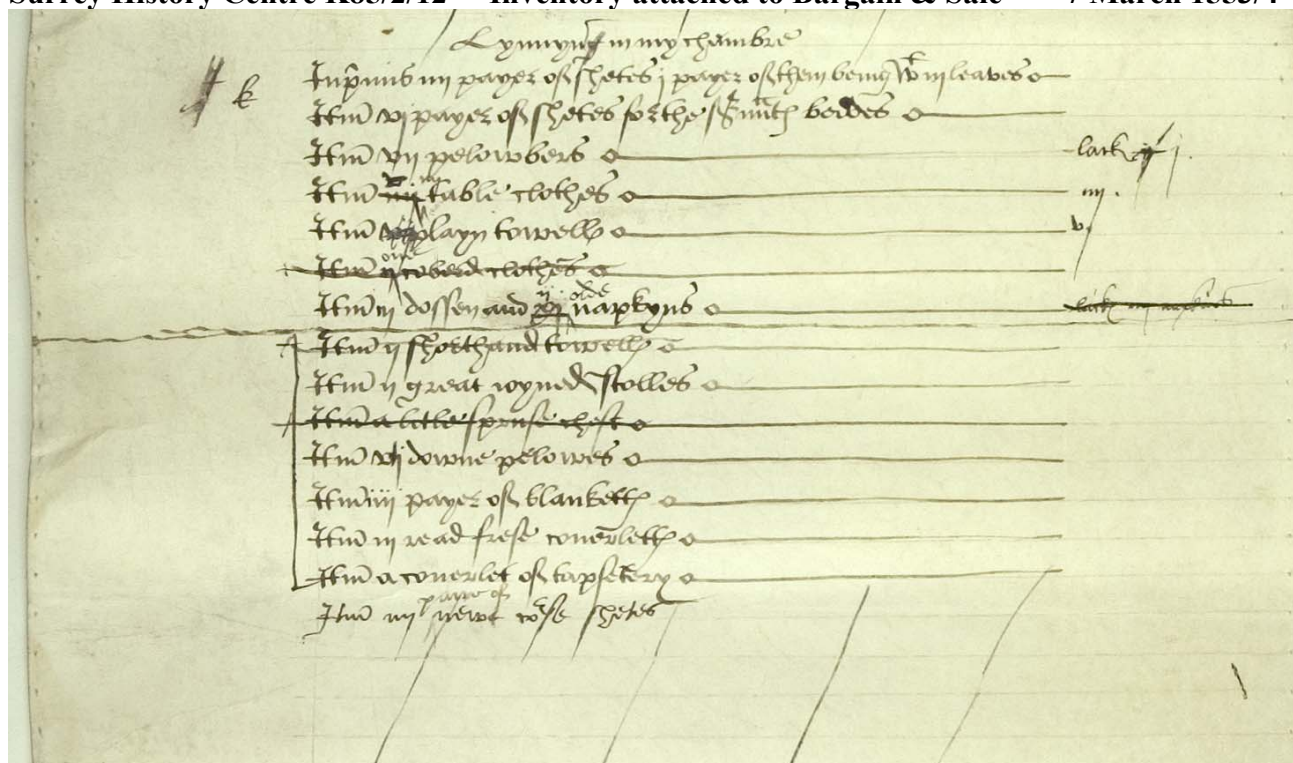 Surrey History Centre K63/2/12 Inventory attached to Bargain & Sale 7 March 1553/4
Lynnyng in my chambre
k
Inp͂mis iiij payer of shetes j payer of them being wt iij leaves
Itm̄ vj payer of shetes for the beddes
Itm̄ vij pelowbers lack j.
Itm̄ iiij table clothes iiij.
Itm̄ playn towell v
Itm̄ one coberd clothes
Itm̄ iij dossen and ij olde napkyns lack
Itm̄ ij shorthand towell
Itm̄ ij great wyned stolles
Itm̄ a litle spruse chest
Itm̄ vj downe pelowes
Itm̄ iiij payer of blankett
Itm̄ iij read frese coverlett
Itm̄ a coverlet of tapsetery
Itm̄ iiij payre of newe corse shetes